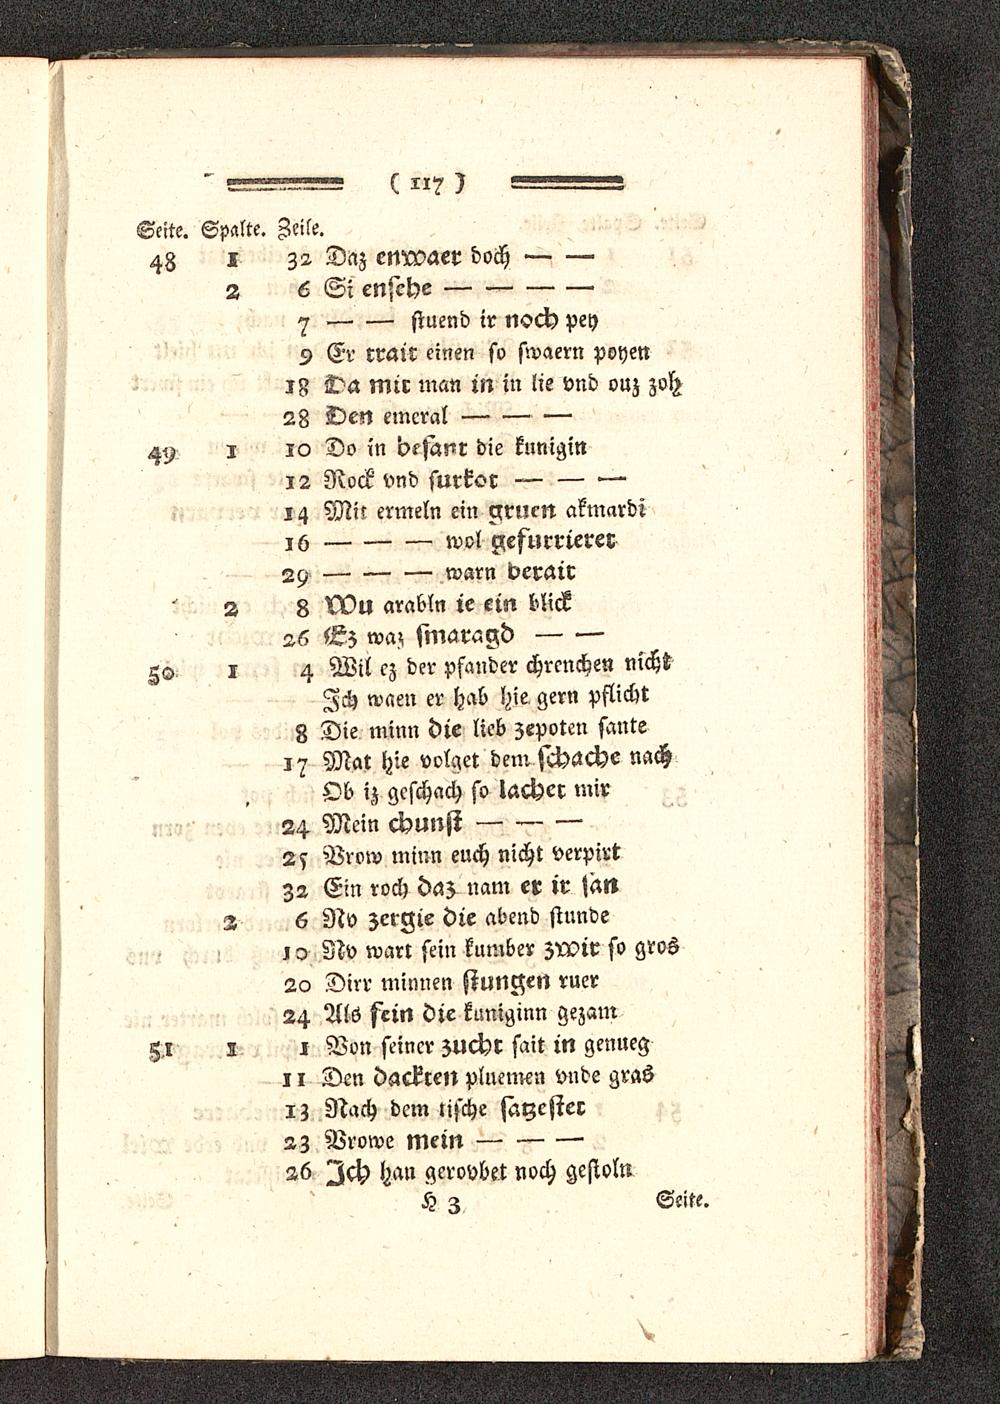 ( 117 )
Seite. Spalte. Zeile.
48 1 32 Daz enwaer doch — —
2 6 Si ensehe — — — —
7 — — stuend ir noch pey
9 Er trait einen so swaern poyen
18 Da mit man in in lie vnd ouz zoh
28 Den emeral — — —
49 1 10 Do in besant die kunigin
12 Rock vnd surkot — — —
14 Mit ermeln ein gruen akmardi
16 — — — wol gefurrieret
29 — — — warn berait
2 8 Wu arabln ie ein blick
26 Ez waz smaragd — —
50 1 4 Wil ez der pfander chrenchen nicht
Ich waen er hab hie gern pflicht
8 Die minn die lieb zepoten sante
17 Mat hie volget dem schache nach
Ob iz geschach so lachet mir
24 Mein chunst — — —
25 Vrow minn euch nicht verpirt
32 Ein roch daz nam er ir san
2 6 Nv zergie die abend stunde
10 Nv wart sein kumber zwir so gros
20 Dirr minnen stungen ruer
24 Als fein die kuniginn gezam
51 1 1 Von seiner zucht sait in genueg
11 Den dackten pluemen vnde gras
13 Nach dem tische satzestet
23 Vrowe mein — — —
26 Ich han gerovbet noch gestoln
H 3 Seite.